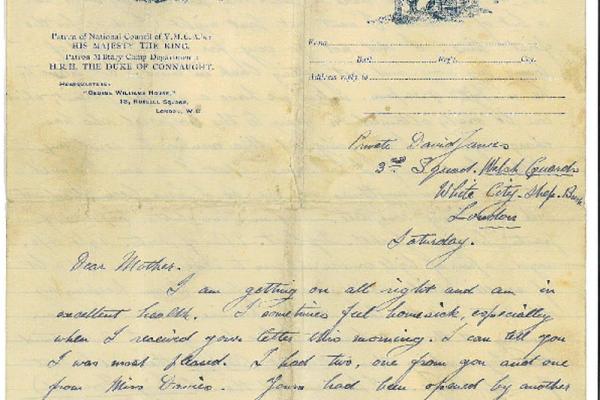 Patron of National Council of Y.M.C.A.'s:
HIS MAJESTY THE KING.
Patron Military Camp Department:
H.R.H. THE DUKE OF CONNAUGHT.
HEADQUARTERS:
"GEORGE WILLIAMS HOUSE,"
13, RUSSELL SQUARE,
LONDON, W.C.
From
Batt. Reg't. Coy.
Address reply to
Private David Jones
3rd Squad. Welsh Guards
White City. Shep. Bush
London
Saturday.
Dear Mother.
I am getting on all right and am in
excellent health. I sometimes feel homesick, especially
when I received your letter this morning. I can tell you
I was most pleased. I had two, one from you and one
from Miss Davies. Yours had been opened by another